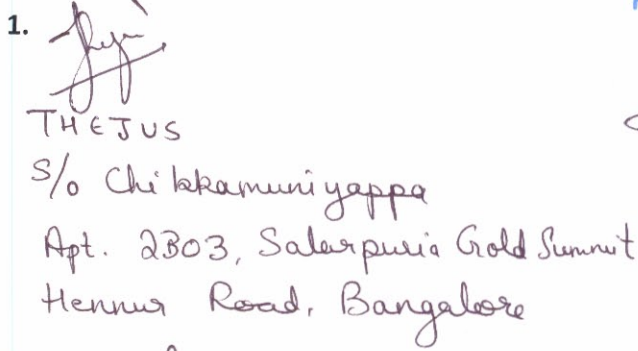 1.
THEJUS
S/o Chikkamuniyappa
Apt. 2B03, Salarpuria Gold Summit
Hennur Road, Bangalore